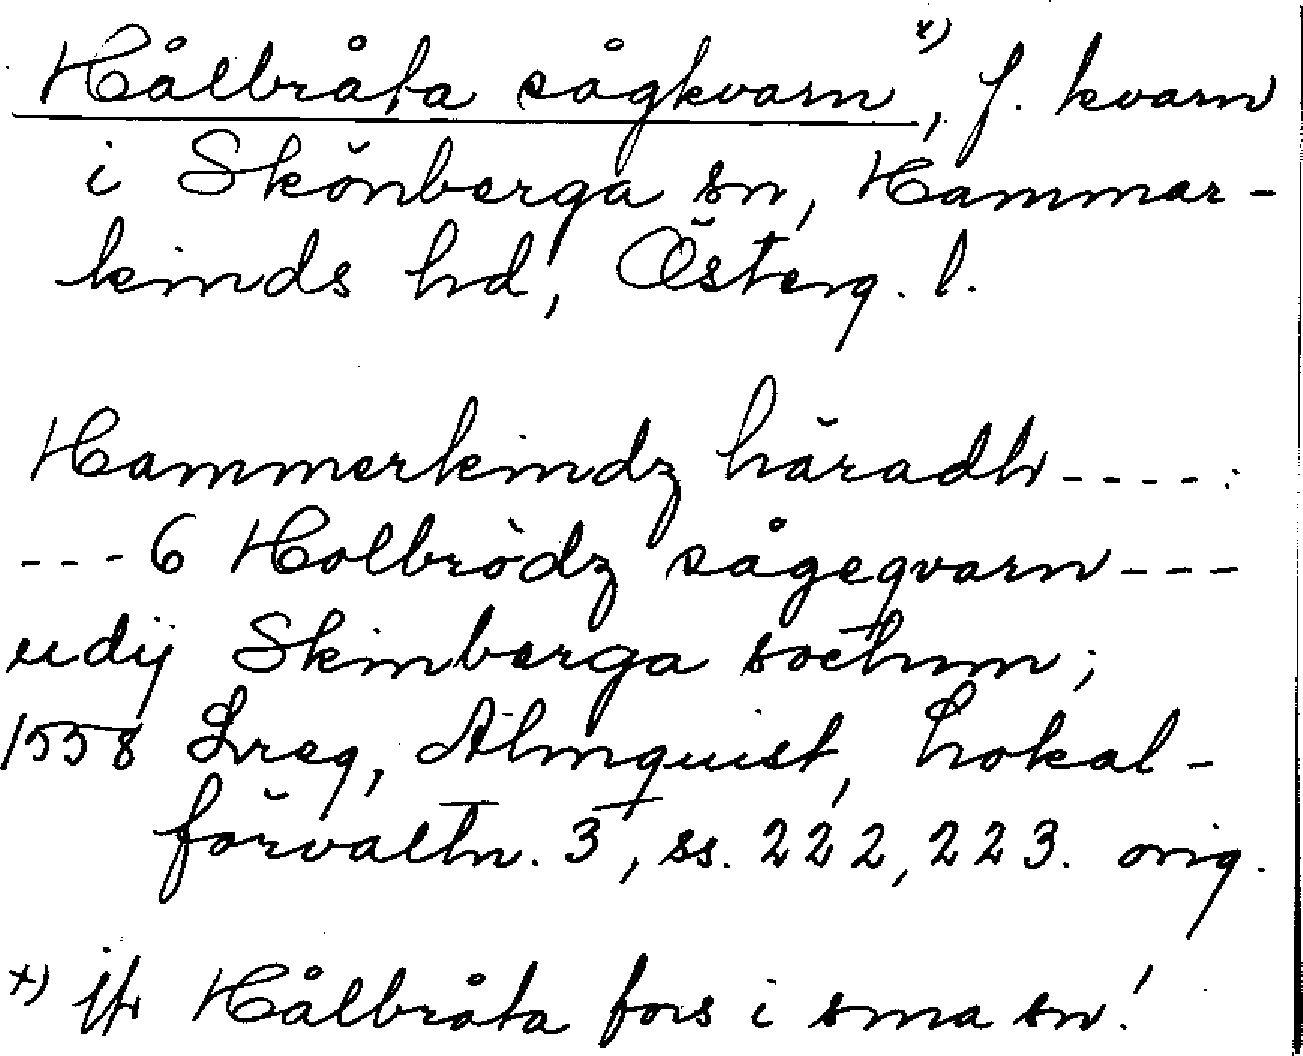 Hålbråta sågkvarn x), f. kvarn
i Skönberga sn, Hammar-
kinds hd, Österg. l.
Hammerkindz häradh ----:
--- 6 Holbrödz sågeqvarn ---
udij Skinberga sochnn;
1558 Lreg, Almquist, Lokal-
förvaltn. 3, ss. 222, 223. orig.
x) jfr Hålbråta fors i sma sn!